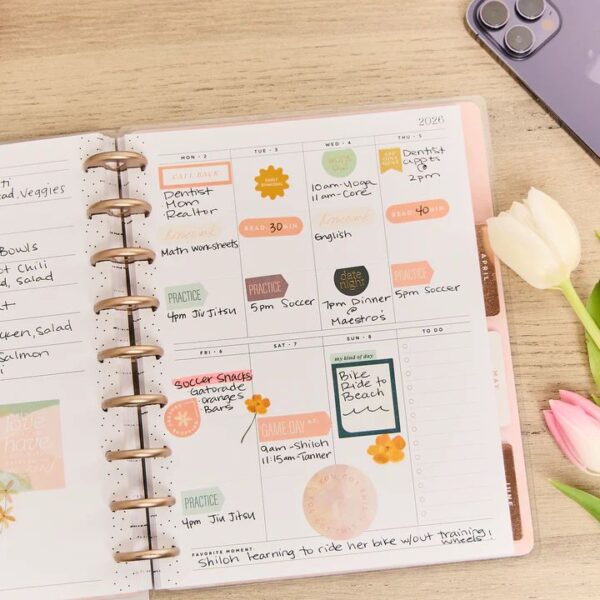 ad, Veggies
Bowls
ot Chili
d, salad
cken, Salad
Salmon
love
have
2026
MON • 2
TUE • 3
WED • 4
THU • 5
CALL BACK
Dentist
Mom
Realtor
Homework
Math worksheets
PRACTICE
4pm Jiu Jitsu
EARLY
DISMISSAL
READ 30 MIN
PRACTICE
5pm Soccer
10am-Yoga
11am-Core
Homework
English
date
night
7pm Dinner
@
Maestro's
Dentist
appts
@
2pm
READ 40 MIN
PRACTICE
5pm Soccer
FRI • 6
SAT • 7
SUN • 8
TO DO
Soccer Snacks
Gatorade
Oranges
Bars
PRACTICE
4pm Jiu Jitsu
GAME DAY
9am-Shiloh
11:15am-Tanner
my kind of day
Bike
Ride to
Beach
FAVORITE MOMENT
Shiloh learning to ride her bike w/out training
wheels!
APRIL
MAY
JUNE